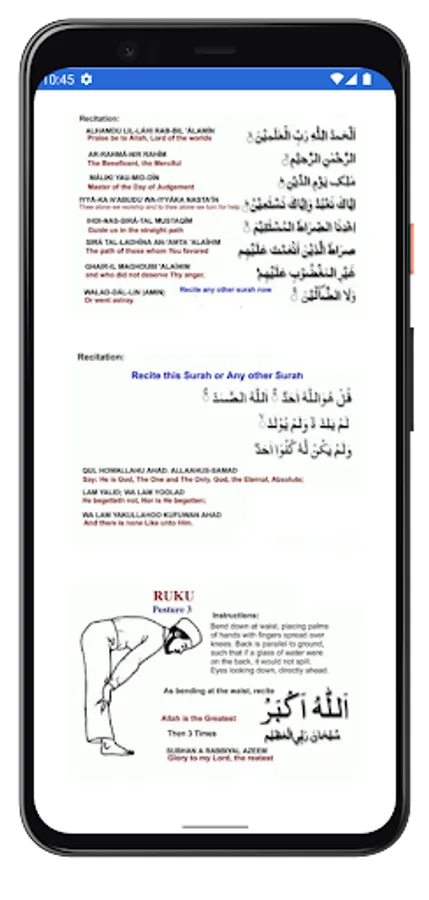 10:45
Recitation:
ALHAMDU LIL-LÁHI RAB-BIL 'ÁLAMÍN
Praise be to Allah, Lord of the worlds
اَلْحَمْدُ لِلّٰهِ رَبِّ الْعٰلَمِيْنَ
AR-RAHMÁ-NIR RAHÍM
The Beneficent, the Merciful
الرَّحْمٰنِ الرَّحِيْمِ
MÁLIKI YAU-MID-DÍN
Master of the Day of Judgement
مٰلِكِ يَوْمِ الدِّيْنِ
IYYÁ-KA NA'BUDU WA-IYYÁKA NASTA'ÍN
Thee alone we worship and to thee alone we turn for help
اِيَّاكَ نَعْبُدُ وَاِيَّاكَ نَسْتَعِيْنُ
IHDI-NAS-SIRÁ-TAL MUSTAQÍM
Guide us in the straight path
اِهْدِنَا الصِّرَاطَ الْمُسْتَقِيْمَ
SIRÁ TAL-LADHÍNA AN'AMTA 'ALAÍHIM
The path of those whom You favored
صِرَاطَ الَّذِيْنَ اَنْعَمْتَ عَلَيْهِمْ
GHAIR-IL MAGHDUBI 'ALAÍHIM
and who did not deserve Thy anger,
غَيْرِ الْمَغْضُوْبِ عَلَيْهِمْ
WALAD-DÁL-LIN (AMIN)
Or went astray.
Recite any other surah now
وَلَا الضَّآلِّيْنَ
Recitation:
Recite this Surah or Any other Surah
قُلْ هُوَ اللّٰهُ اَحَدٌ اَللّٰهُ الصَّمَدُ
لَمْ يَلِدْ وَلَمْ يُوْلَدْ
وَلَمْ يَكُنْ لَّهٗ كُفُوًا اَحَدٌ
QUL HOWALLAHU AHAD. ALLAAHUS-SAMAD
Say: He is God, The One and The Only. God, the Eternal, Absolute;
LAM YALID; WA LAM YOOLAD
He begetteth not, Nor is He begotten;
WA LAM YAKULLAHOO KUFUWAN AHAD
And there is none Like unto Him.
RUKU
Posture 3
Instructions:
Bend down at waist, placing palms
of hands with fingers spread over
knees. Back is parallel to ground,
such that if a glass of water were
on the back, it would not spill.
Eyes looking down, directly ahead.
As bending at the waist, recite
اَللّٰهُ اَكْبَرُ
Allah is the Greatest
Then 3 Times
سُبْحَانَ رَبِّيَ الْعَظِيْمِ
SUBHAN A RABBIYAL AZEEM
Glory to my Lord, the reatest